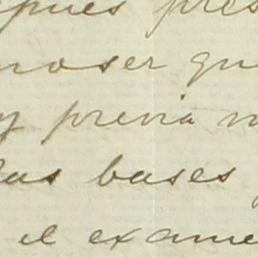 pués pres
noser que
y previa
las bases
el exame